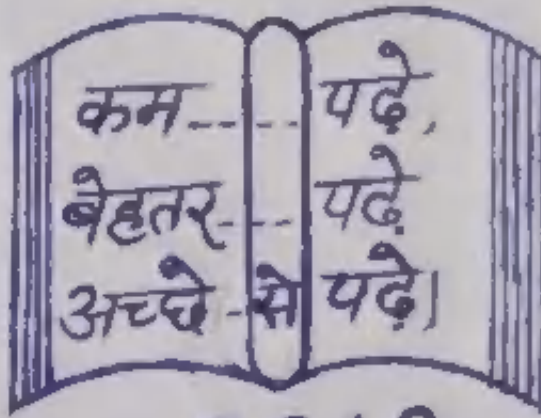 कम----- पढे,
बेहतर---- पढे
अच्छे-से पढे।